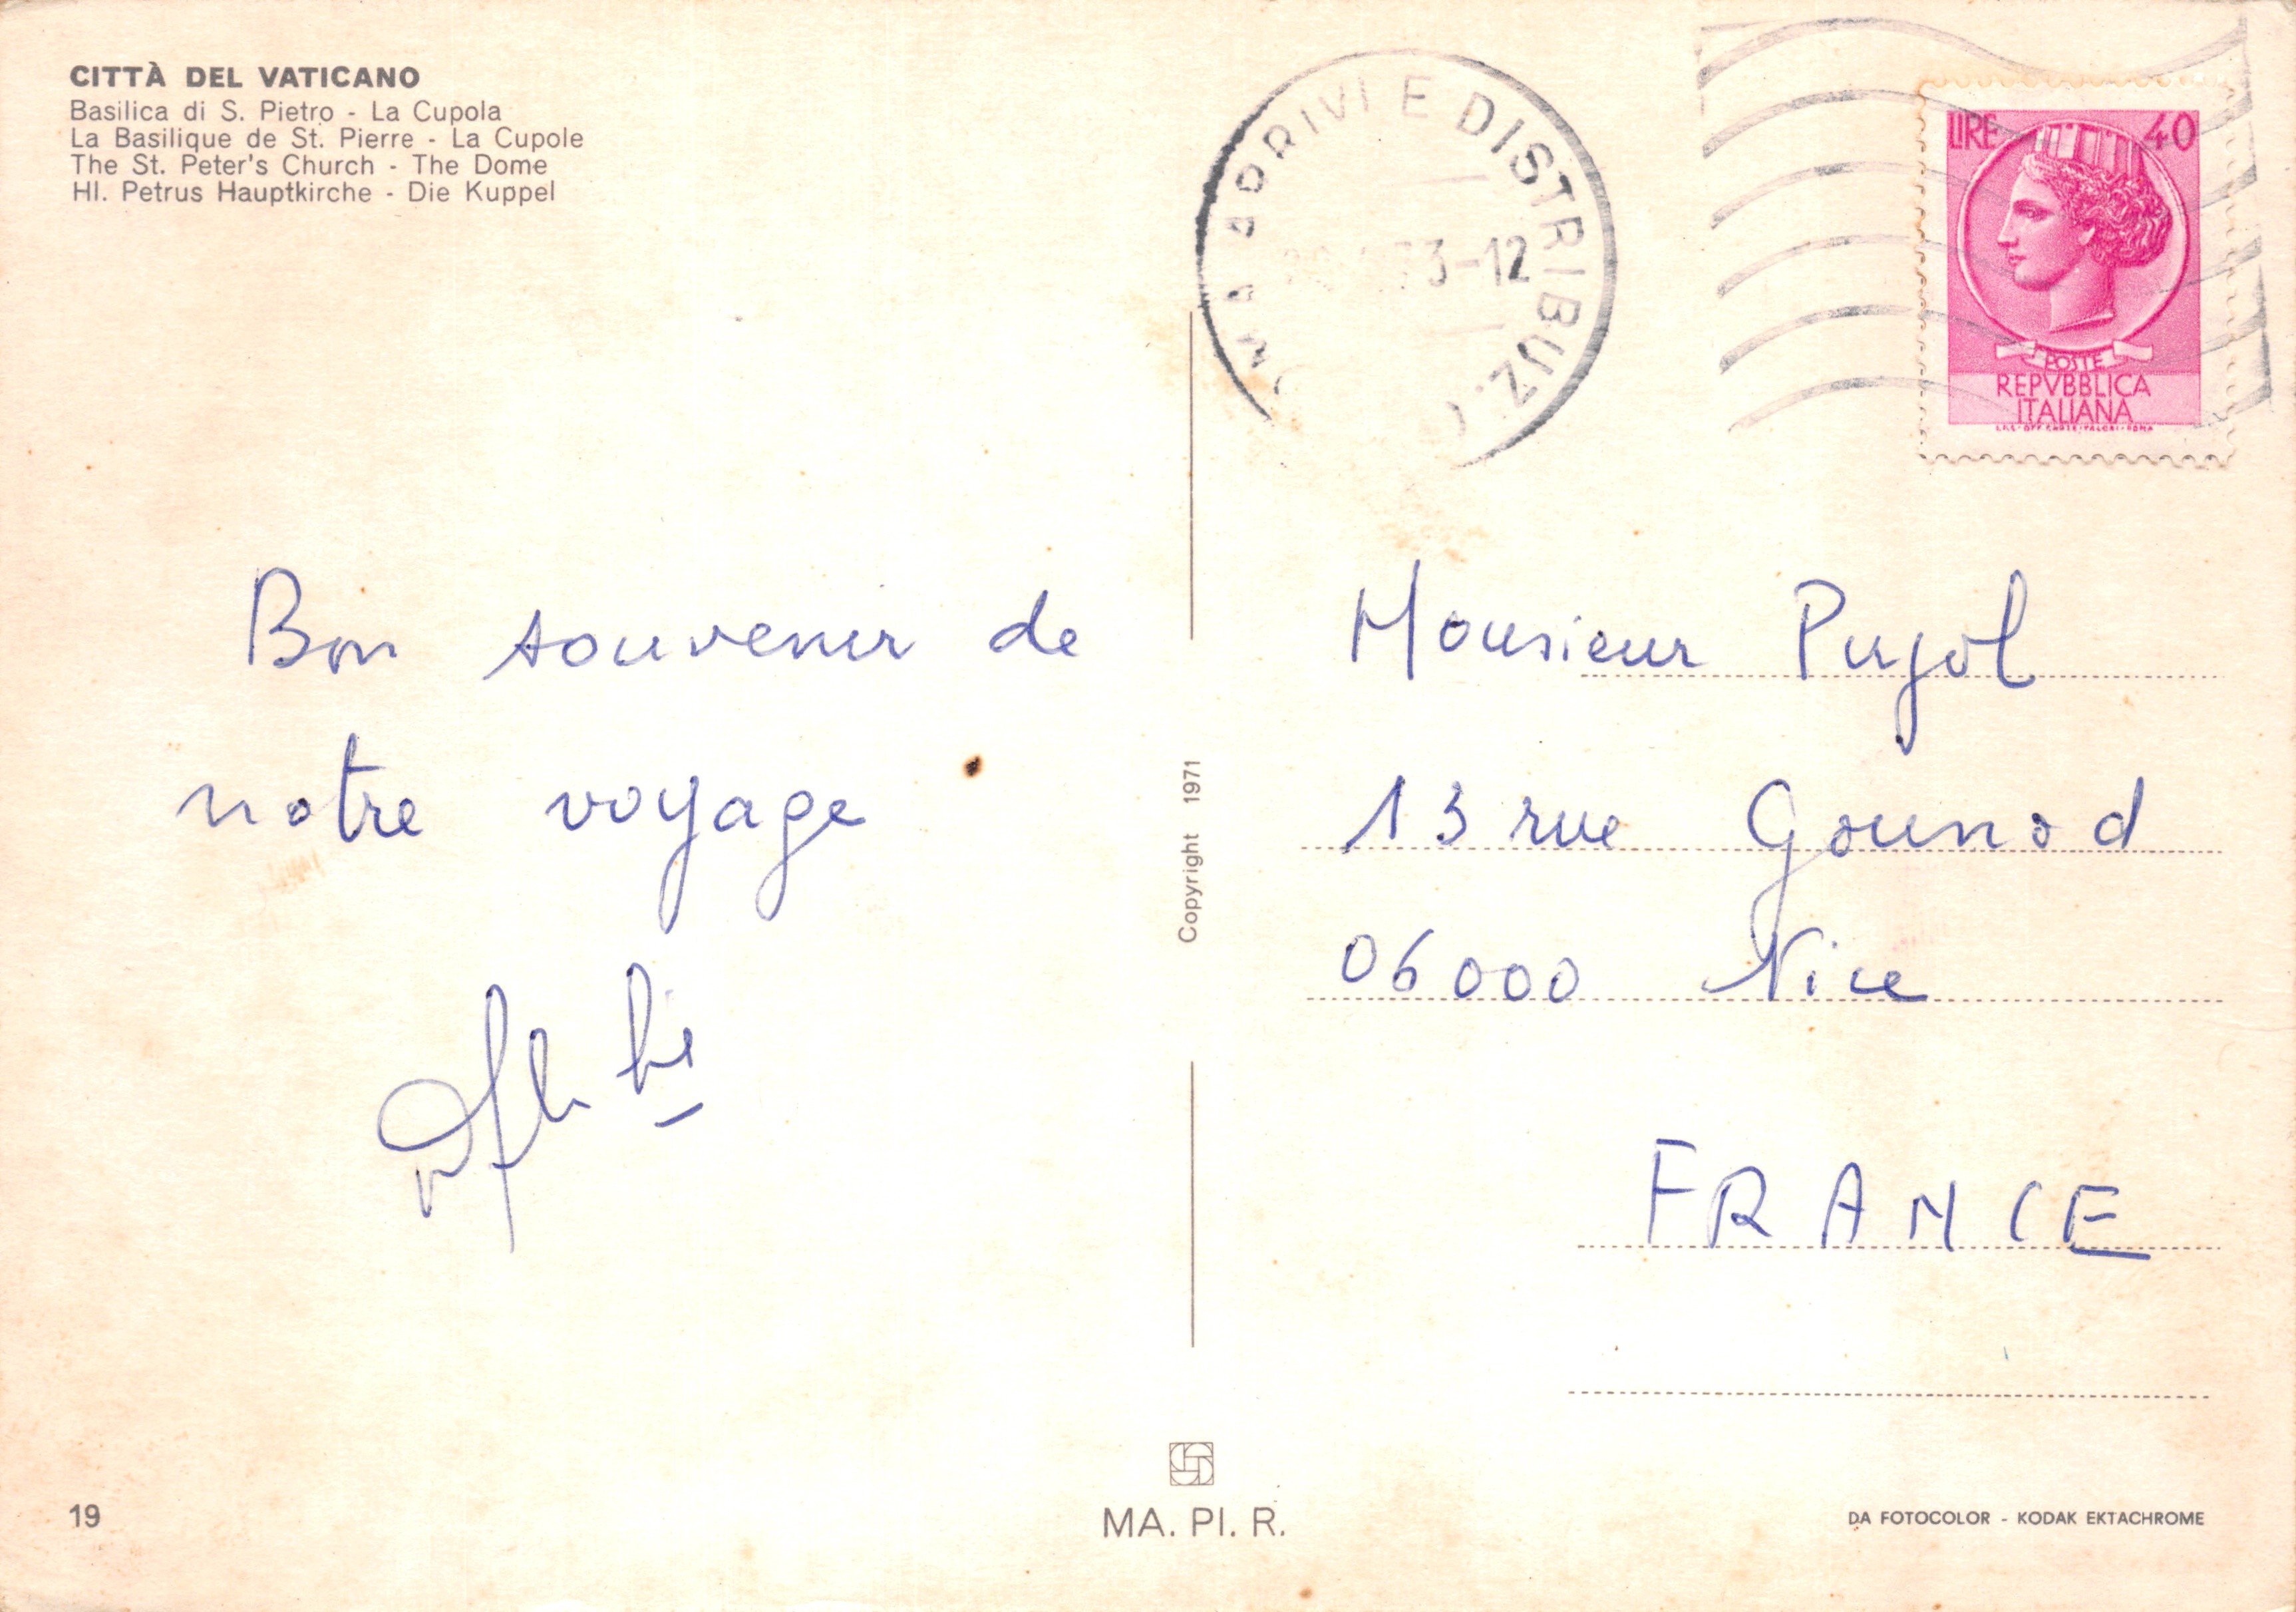 CITTÀ DEL VATICANO
Basilica di S. Pietro - La Cupola
La Basilique de St. Pierre - La Cupole
The St. Peter's Church - The Dome
Hl. Petrus Hauptkirche - Die Kuppel
ARRIVI E DISTRIBUZ.
3-12
LIRE 40
POSTE
REPVBBLICA
ITALIANA
Bon souvenir de
notre voyage
Copyright 1971
Monsieur Pujol
13 rue Gounod
06000 Nice
FRANCE
19
MA. PI. R.
DA FOTOCOLOR - KODAK EKTACHROME